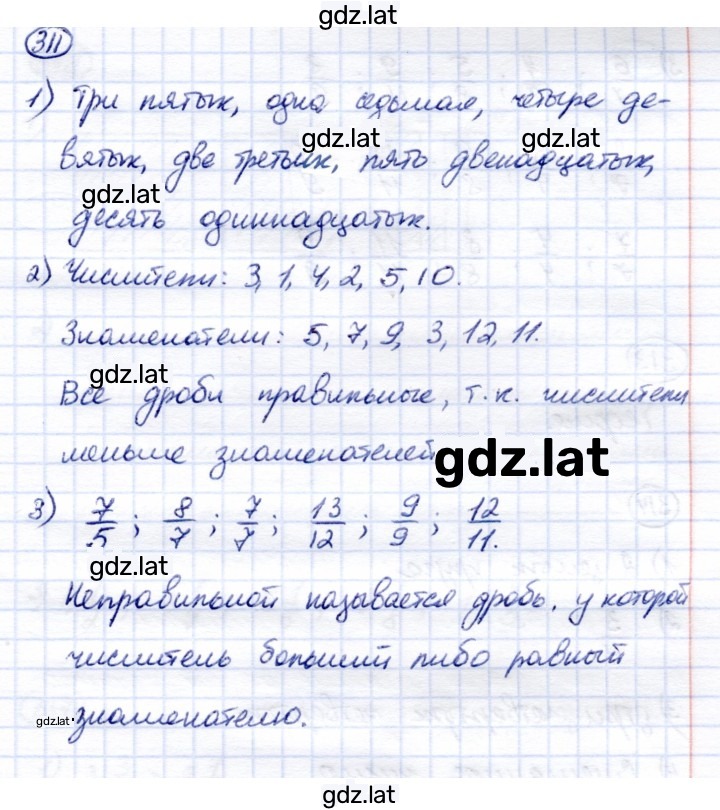 gdz.lat
311
1) Три пятых, одна седьмая, четыре де-
gdz.lat gdz.lat
вятых, две третьих, пять двенадцатых,
gdz.lat
десять одиннадцатых.
2) Числители: 3, 1, 4, 2, 5, 10.
Знаменатели: 5, 7, 9, 3, 12, 11.
gdz.lat
Все дроби правильные, т.к. числители
меньше знаменателей
gdz.lat
3) 7/5; 8/7; 7/7; 13/12; 9/9; 12/11.
gdz.lat
Неправильной называется дробь, у которой
числитель больший либо равный
gdz.lat
знаменателю.
gdz.lat